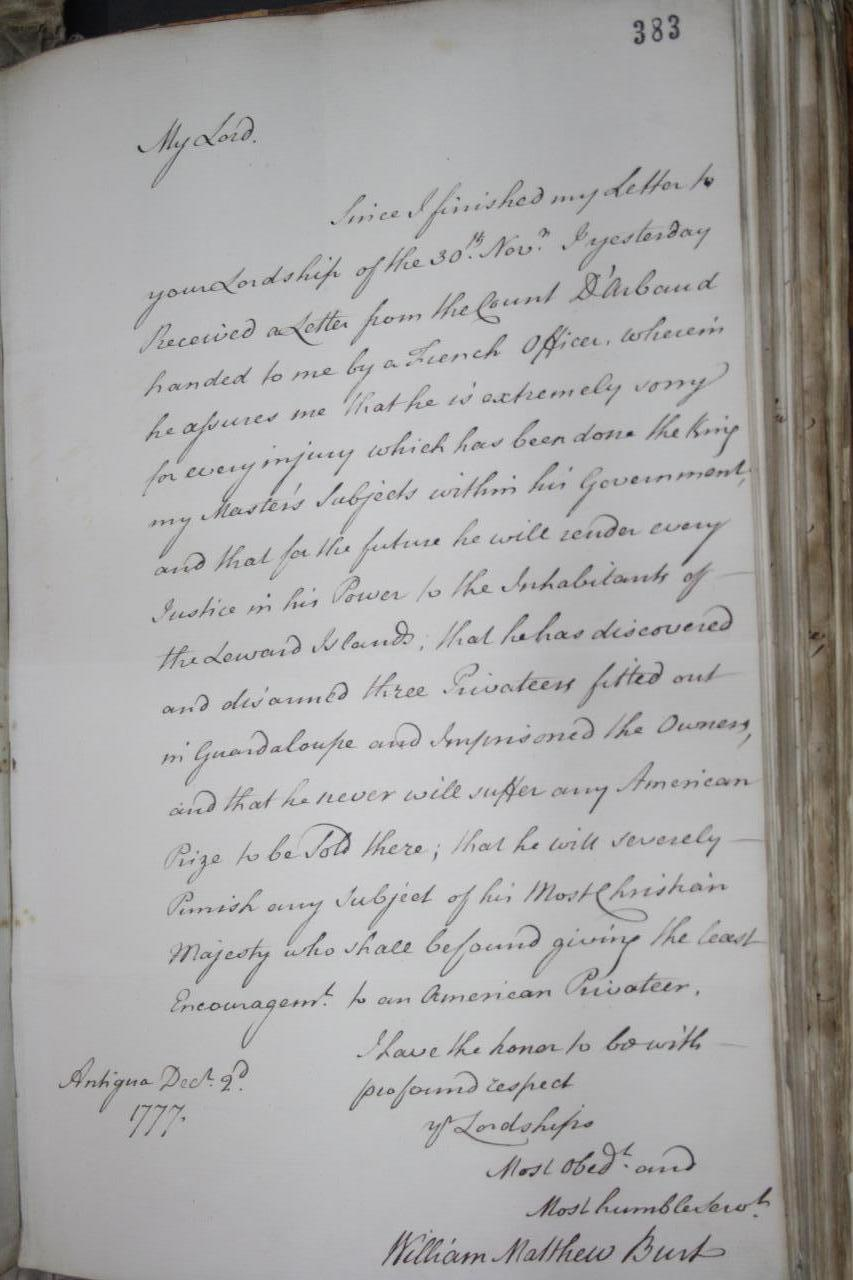 383
My Lord.
Since I finished my Letter to
your Lordship of the 30th. Novr. I yesterday
Received a Letter from the Count D'Arbaud
handed to me by a French Officer, wherein
he assures me that he is extremely sorry
for every injury which has been done the King
my Master's Subjects within his Government,
and that for the future he will render every
Justice in his Power to the Inhabitants of
the Leward Islands; that he has discovered
and disarmed three Privateers fitted out
in Guardaloupe and Imprisoned the Owners,
and that he never will suffer any American
Prize to be Sold there; that he will severely
Punish any Subject of his Most Christian
Majesty who shall be found giving the least
Encouragemt. to an American Privateer.
I have the honor to be with
profound respect
yr Lordships
Most Obedt. and
Most humble Servt.
William Matthew Burt
Antigua Decr. 2d.
1777.